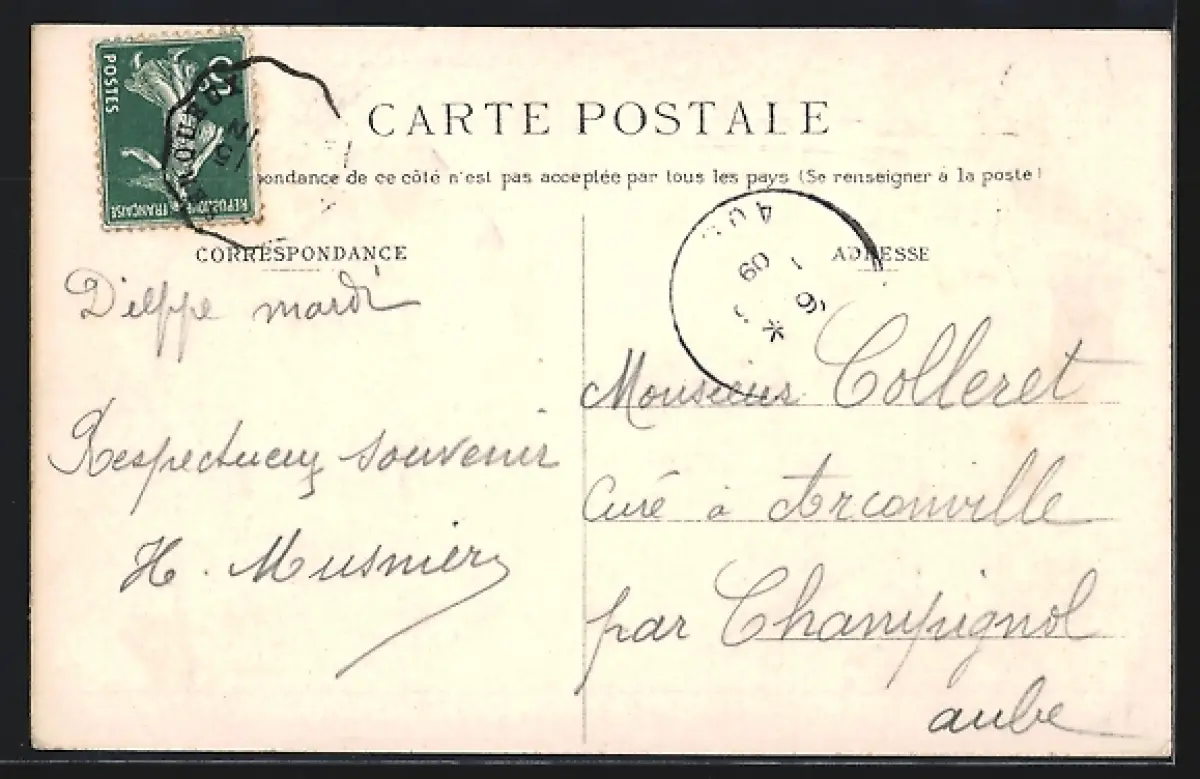 POSTES
REPUBLIQUE FRANÇAISE
15
CARTE POSTALE
pondance de ce côté n'est pas acceptée par tous les pays (Se renseigner à la poste)
CORRESPONDANCE
Dieppe mardi
Respectueux souvenir
H. Musnier
ADRESSE
09
Monsieur Colleret
Curé à Arconville
par Champignol
aube